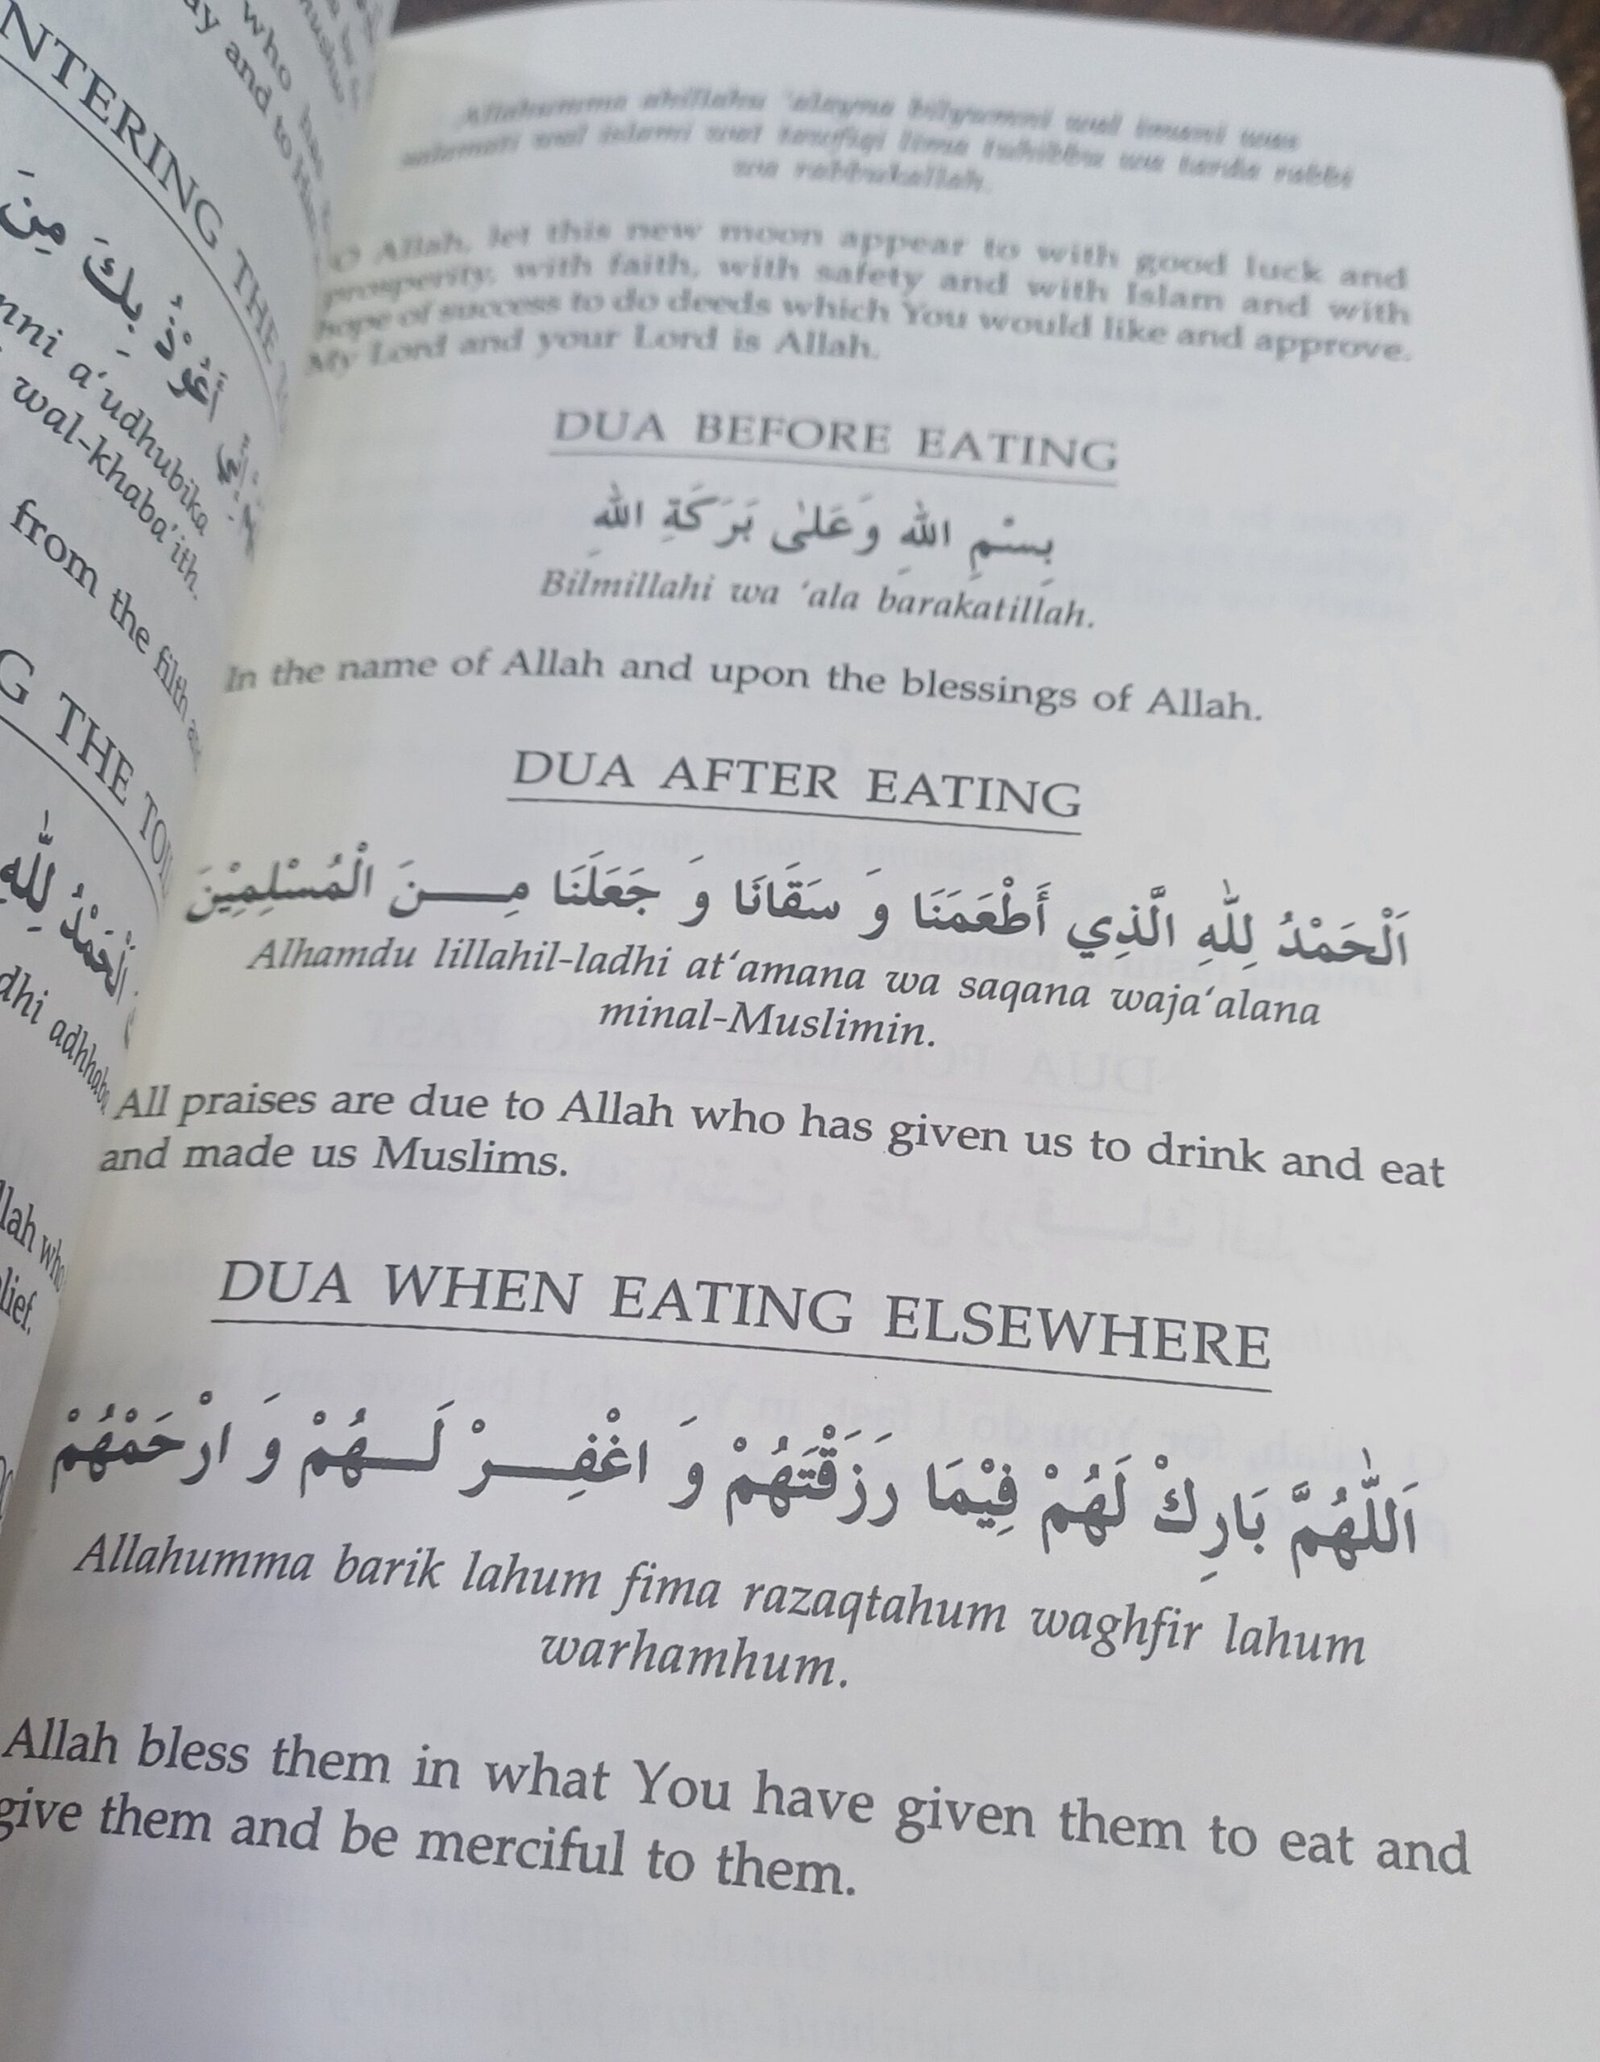 NTERING THE
أَعُوْذُ بِكَ مِنَ
a‘udhubika
wal-khaba’ith.
from the filth
G THE
اَلْحَمْدُ لِلّٰهِ
Allahumma ahillahu ‘alayna bilyumni wal imani was
salamati wal islami wat tawfiqi lima tuhibbu wa tarda rabbi
wa rabbukallah.
O Allah, let this new moon appear to with good luck and
prosperity, with faith, with safety and with Islam and with
hope of success to do deeds which You would like and approve.
My Lord and your Lord is Allah.
DUA BEFORE EATING
بِسْمِ اللهِ وَعَلىٰ بَرَكَةِ اللهِ
Bilmillahi wa ‘ala barakatillah.
In the name of Allah and upon the blessings of Allah.
DUA AFTER EATING
اَلْحَمْدُ لِلّٰهِ الَّذِي أَطْعَمَنَا وَ سَقَانَا وَ جَعَلَنَا مِنَ الْمُسْلِمِيْنَ
Alhamdu lillahil-ladhi at‘amana wa saqana waja‘alana
minal-Muslimin.
All praises are due to Allah who has given us to drink and eat
and made us Muslims.
DUA WHEN EATING ELSEWHERE
اَللّٰهُمَّ بَارِكْ لَهُمْ فِيْمَا رَزَقْتَهُمْ وَ اغْفِرْ لَهُمْ وَ ارْحَمْهُمْ
Allahumma barik lahum fima razaqtahum waghfir lahum
warhamhum.
Allah bless them in what You have given them to eat and
give them and be merciful to them.